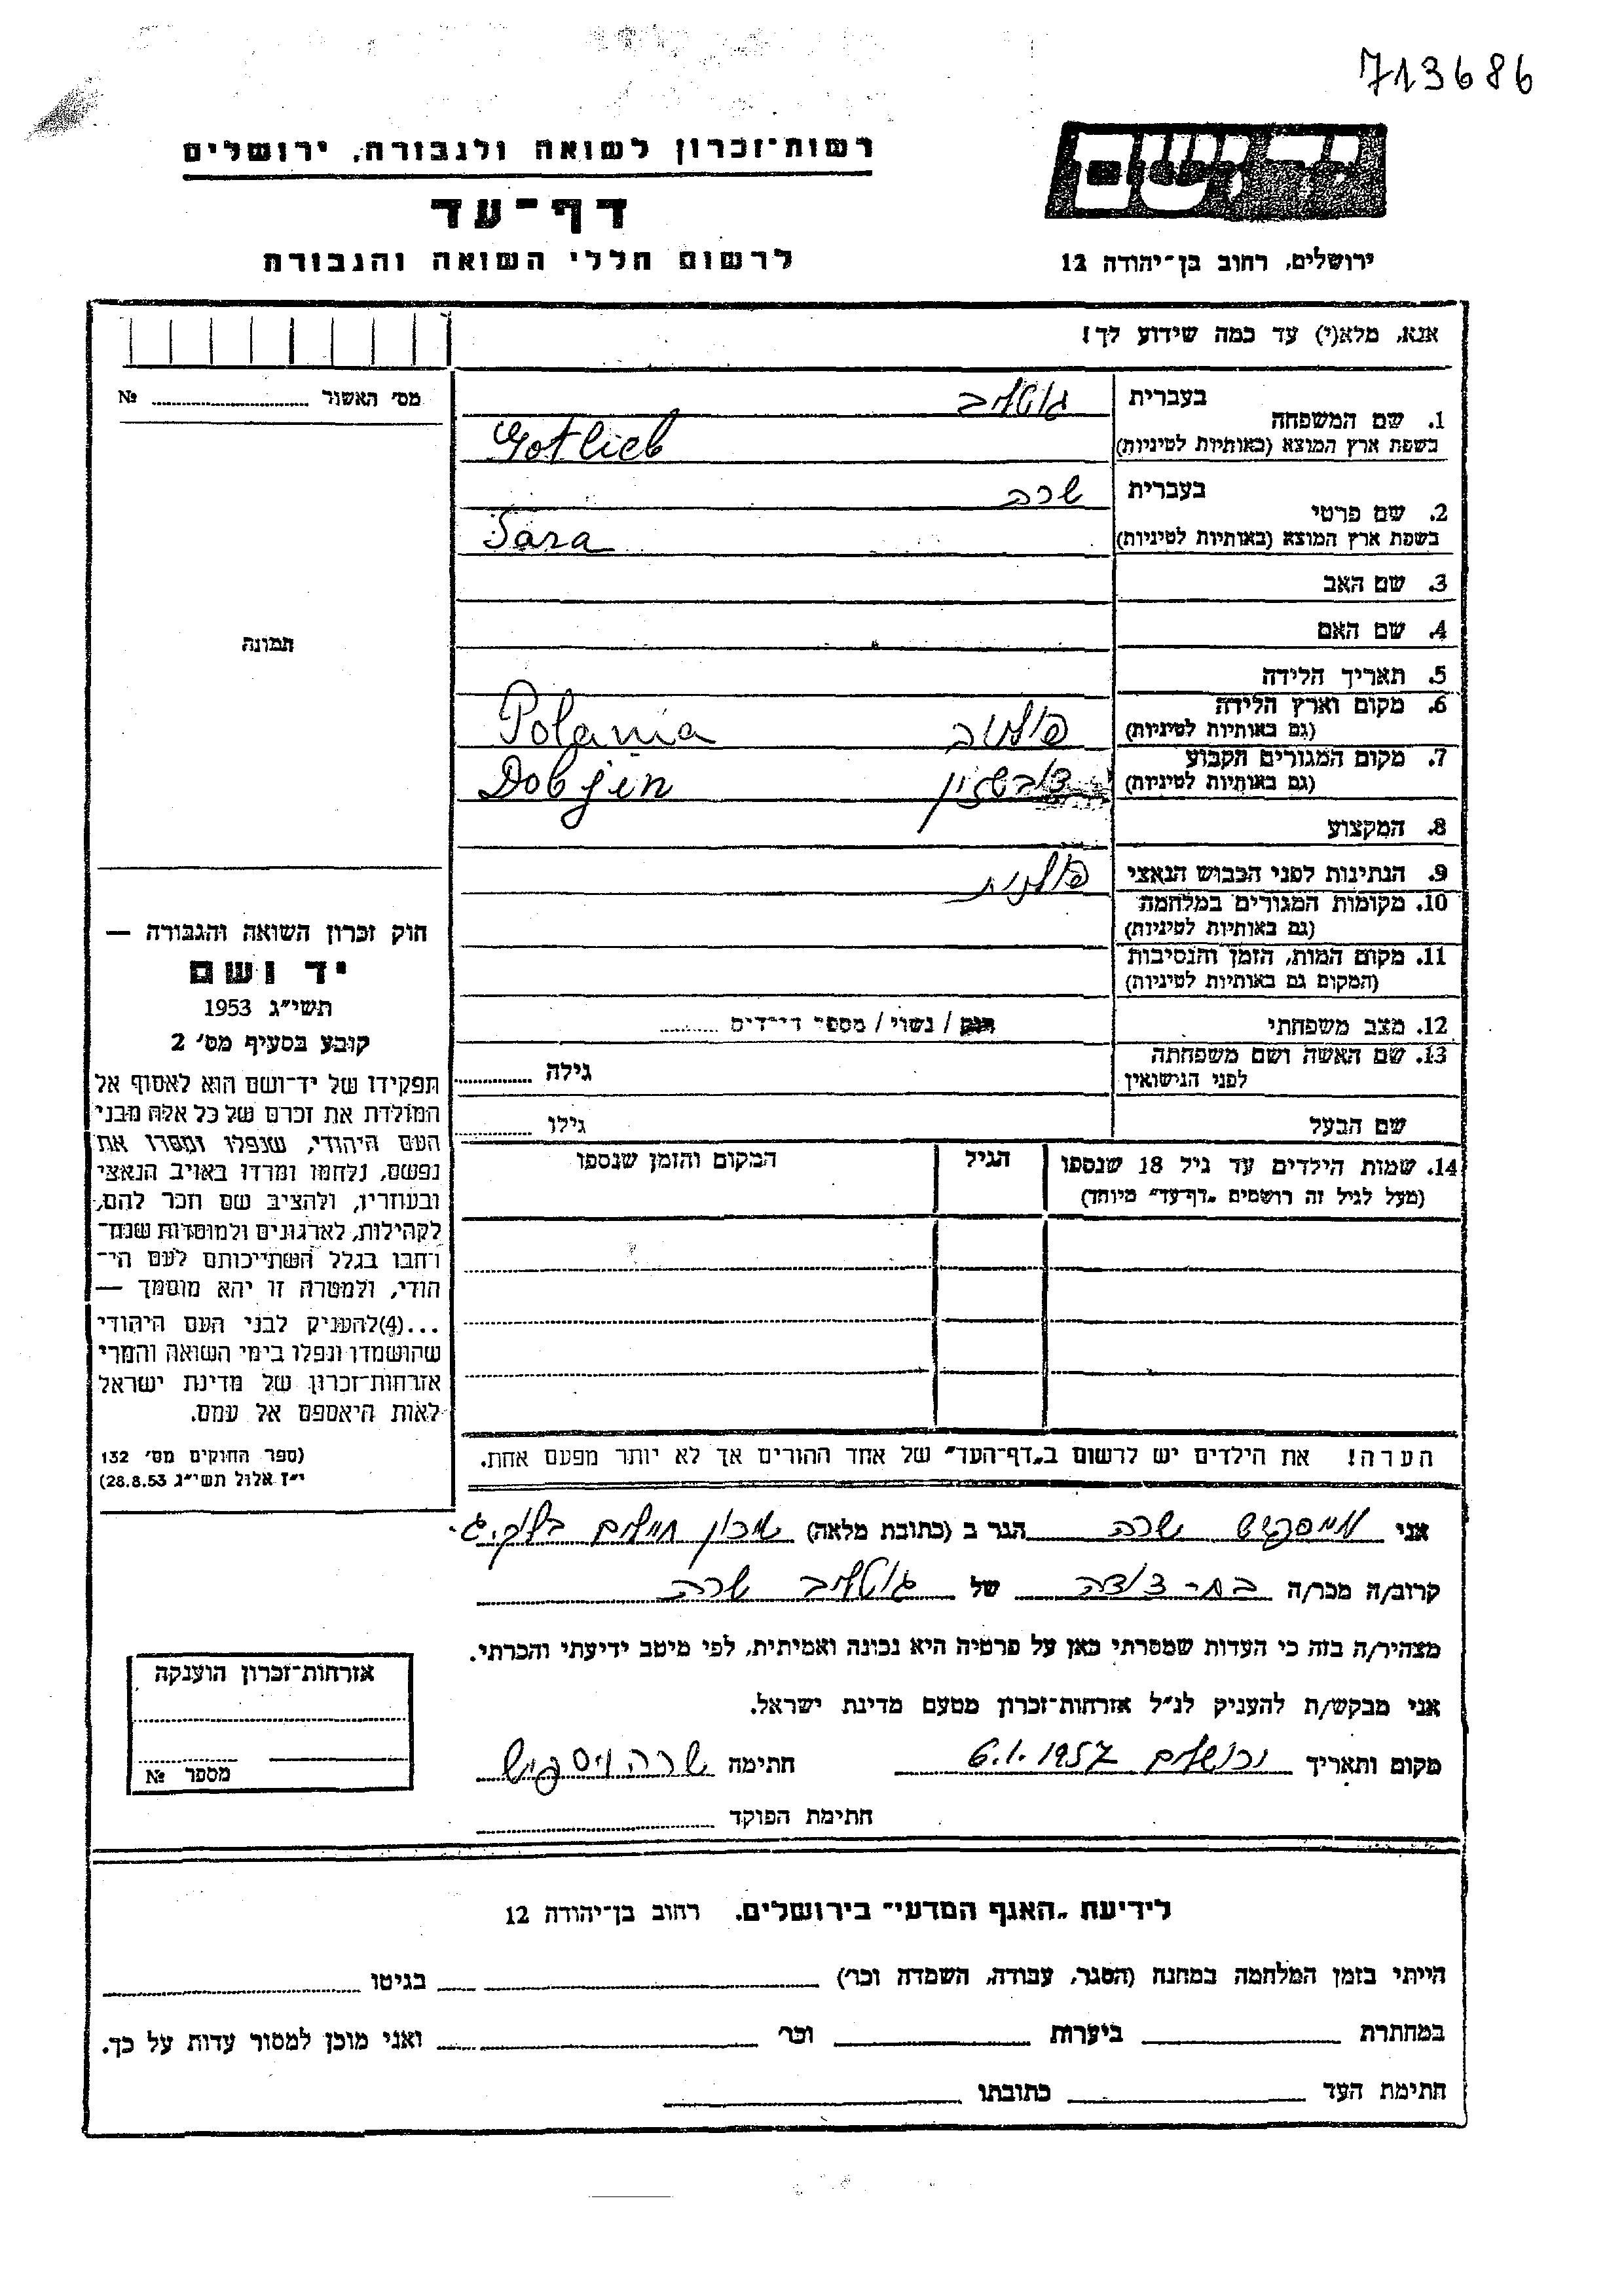 713686
יד ושם
רשות־זכרון לשואה ולגבורה, ירושלים
דף־עד
לרשום חללי השואה והגבורה
ירושלים, רחוב בן־יהודה 12
אנא, מלא(י) עד כמה שידוע לך!
מס׳ האשור № 
1. שם המשפחה
בעברית גוטליב
בשפת ארץ המוצא (באותיות לטיניות) Gotlieb
2. שם פרטי
בעברית שרה
בשפת ארץ המוצא (באותיות לטיניות) Sara
3. שם האב
4. שם האם
5. תאריך הלידה
6. מקום וארץ הלידה
(גם באותיות לטיניות) פולניה Polania
7. מקום המגורים הקבוע
(גם באותיות לטיניות) Dobjin
8. המקצוע
9. הנתינות לפני הכבוש הנאצי פולנית
10. מקומות המגורים במלחמה
(גם באותיות לטיניות)
11. מקום המות, הזמן והנסיבות
(המקום גם באותיות לטיניות)
12. מצב משפחתי רווק / נשוי / מספר הילדים
13. שם האשה ושם משפחתה
לפני הנישואין גילה
שם הבעל גילו
14. שמות הילדים עד גיל 18 שנספו הגיל המקום והזמן שנספו
(מעל לגיל זה רושמים „דף־עד״ מיוחד)
הערה! את הילדים יש לרשום ב„דף־העד״ של אחד ההורים אך לא יותר מפעם אחת.
תמונה
חוק זכרון השואה והגבורה —
יד ושם
תשי״ג 1953
קובע בסעיף מס׳ 2
תפקידו של יד־ושם הוא לאסוף אל
המולדת את זכרם של כל אלה מבני
העם היהודי, שנפלו ומסרו את
נפשם, נלחמו ומרדו באויב הנאצי
ובעוזריו, ולהציב שם וזכר להם,
לקהילות, לארגונים ולמוסדות שנח־
רבו בגלל השתייכותם לעם הי־
הודי, ולמטרה זו יהא מוסמך —
...(4)להעניק לבני העם היהודי
שהושמדו ונפלו בימי השואה והמרי
אזרחות־זכרון של מדינת ישראל
לאות היאספם אל עמם.
(ספר החוקים מס׳ 132
י״ז אלול תשי״ג 28.8.53)
אני שרה הגר ב (כתובת מלאה) שכון
קרוב/ה מכר/ה בת דודה של גוטליב שרה
מצהיר/ה בזה כי העדות שמסרתי כאן על פרטיה היא נכונה ואמיתית, לפי מיטב ידיעתי והכרתי.
אני מבקש/ת להעניק לנ״ל אזרחות־זכרון מטעם מדינת ישראל.
מקום ותאריך ירושלים 6.1.1957 חתימה שרה
חתימת הפוקד
אזרחות־זכרון הוענקה
מספר №
לידיעת „האגף המדעי״ בירושלים, רחוב בן־יהודה 12
הייתי בזמן המלחמה במחנה (הסגר, עבודה, השמדה וכר׳) בגיטו
במחתרת ביערות וכר׳ ואני מוכן למסור עדות על כך.
חתימת העד כתובתו